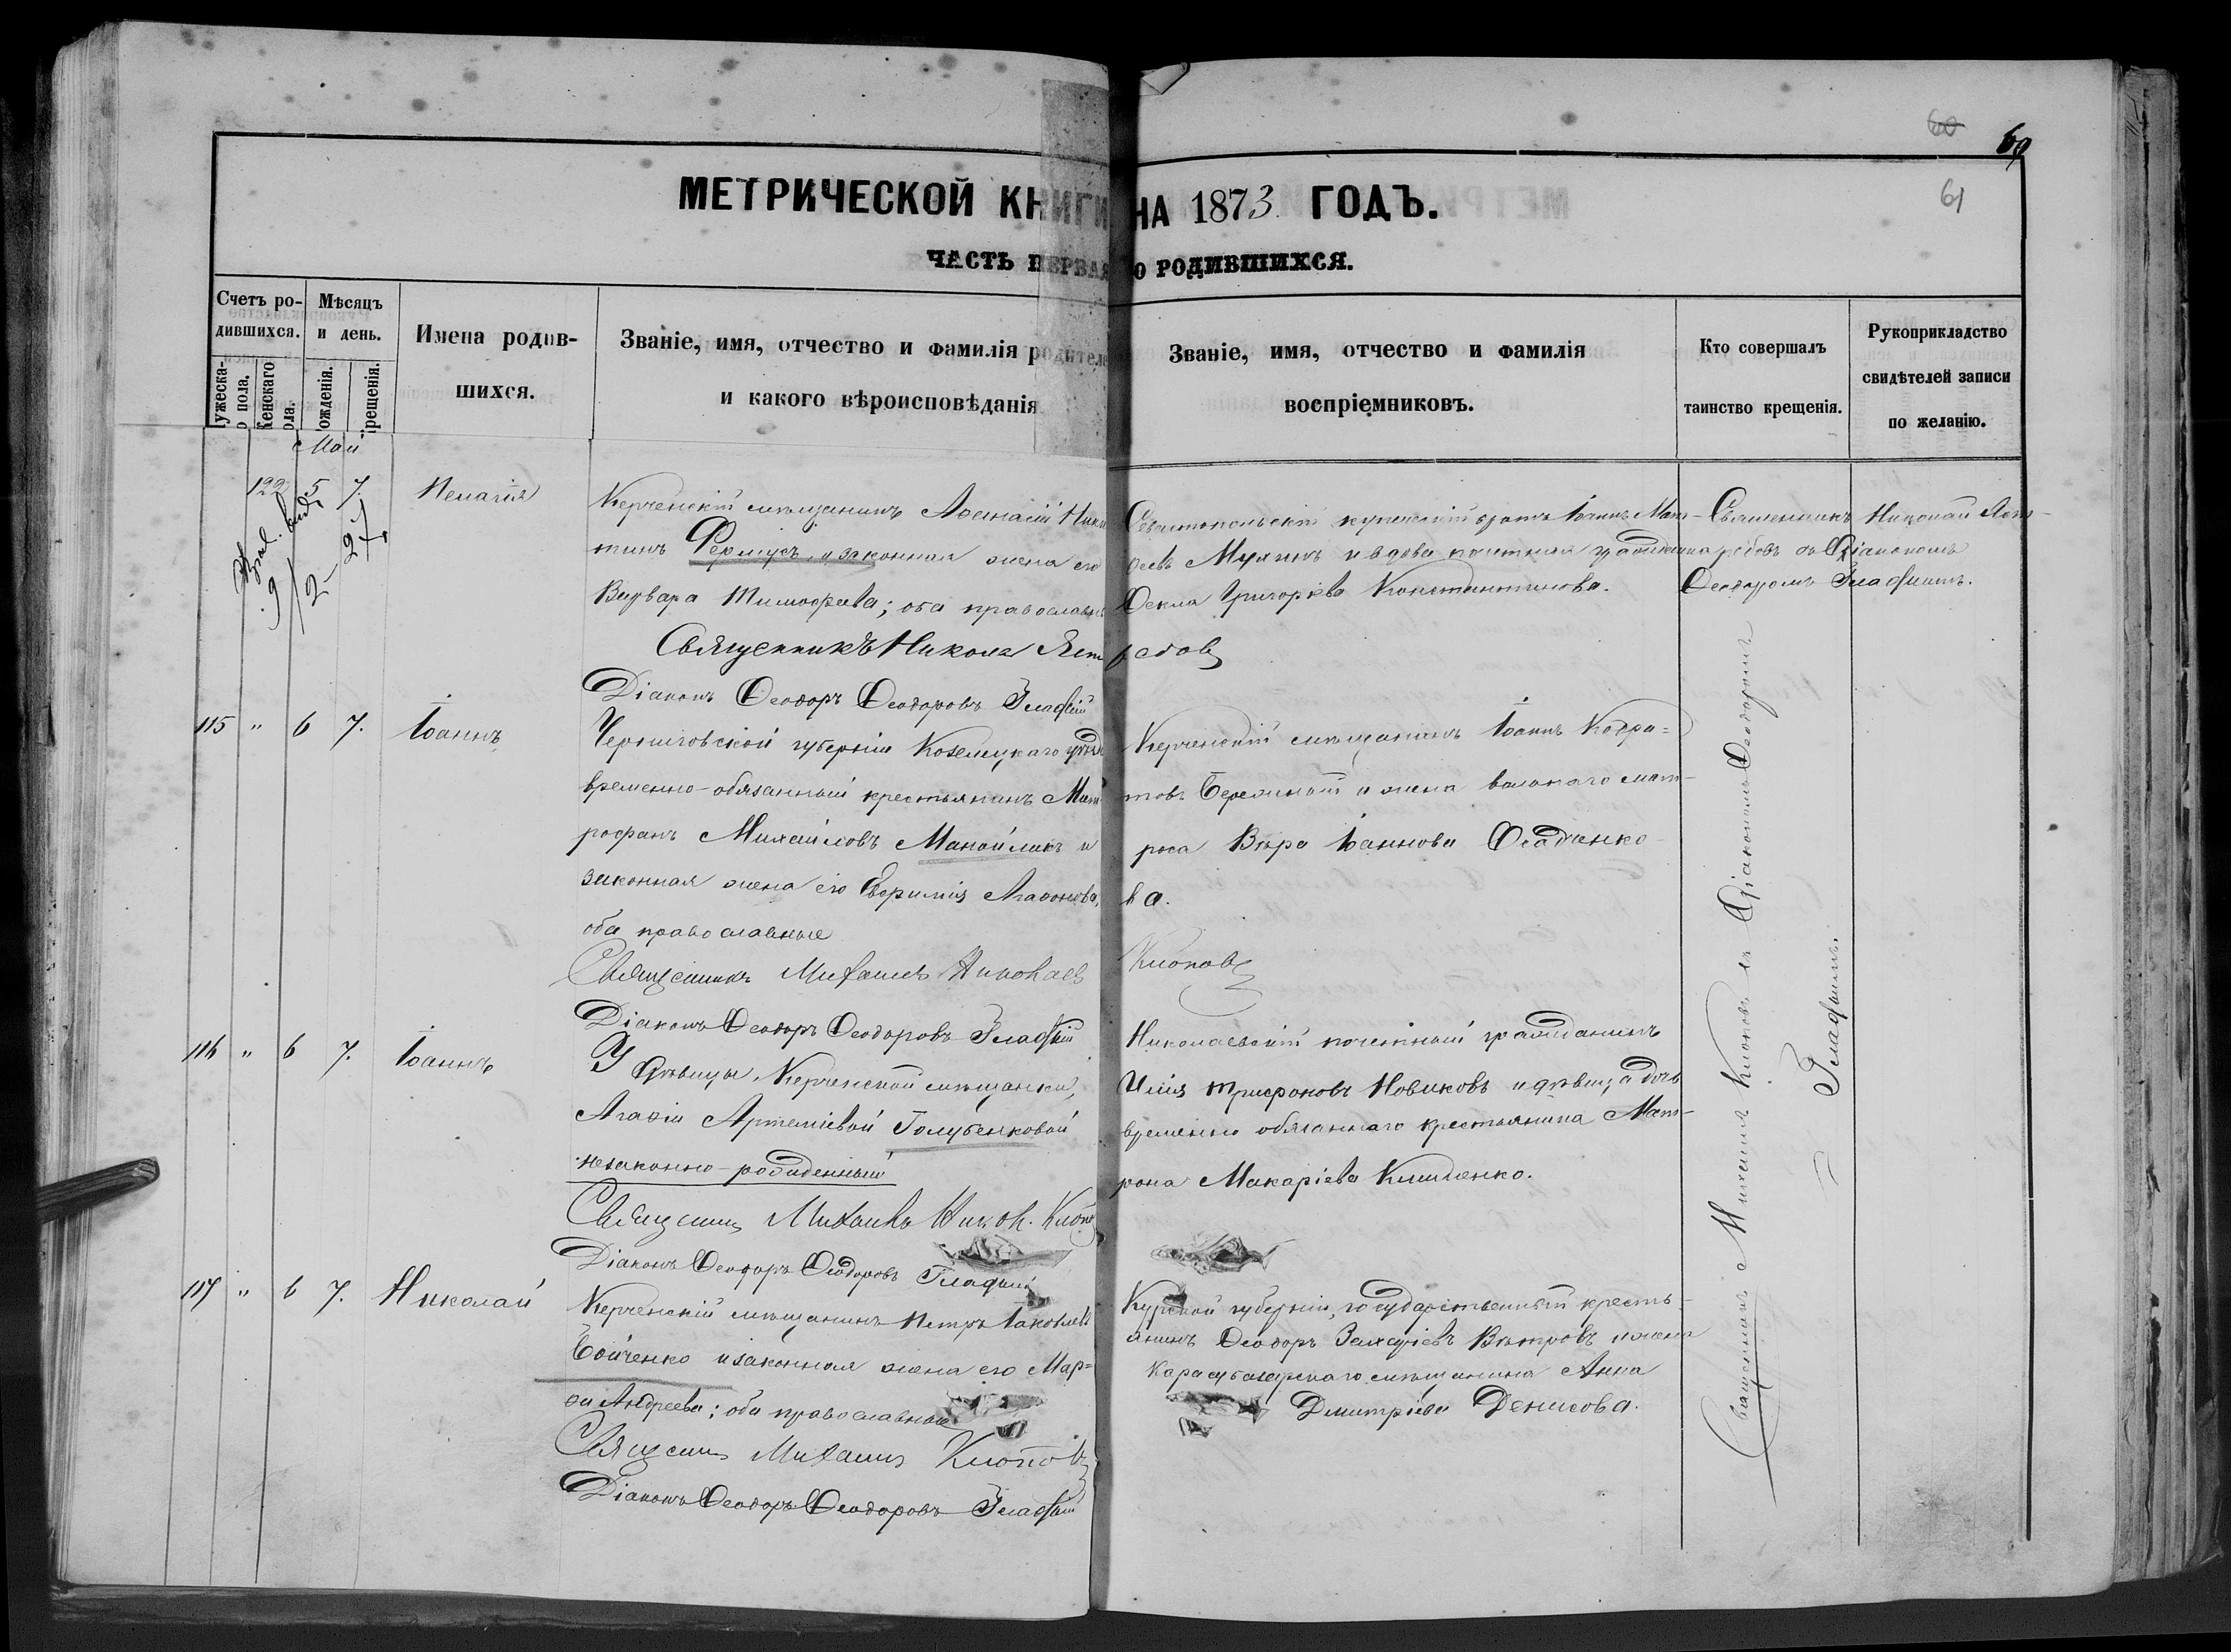 60 69
61
МЕТРИЧЕСКОЙ КНИГИ НА 1873 ГОДЪ.
ЧАСТЬ ПЕРВАЯ О РОДИВШИХСЯ.
Счетъ ро-
дившихся.
Мѣсяцъ
и день.
Имена родив-
шихся.
Званіе, имя, отчество и фамилія родителе
и какого вѣроисповѣданія
Званіе, имя, отчество и фамилія
воспріемниковъ.
Кто совершалъ
таинство крещенія.
Рукоприкладство
свидѣтелей записи
по желанію.
ужеска-
о пола.
Женскаго
ола.
ожденія.
рещенія.
Май
122 5 7. Пелагія
Керченскій мѣщанинъ Аѳанасій Ники
тинъ Фермусъ и законная жена его
Варвара Тимофеева; оба православн
Священникъ Никола Яст ребовъ
Діаконъ Ѳеодоръ Ѳеодоровъ Гладкій
Севастопольскій купеческій братъ Іоаннъ Мат-
ѳеевъ и вдова почетная гражданка
Ѳекла Григорьева Константинова.
Священникъ Николай Яст-
ребовъ съ Діакономъ
Ѳеодоромъ Гладкимъ.
115 " 6 7. Іоаннъ
Черниговской губерніи Козелецкаго уѣзда
временно-обязанный крестьянинъ Мит
рофанъ Михайловъ Манойликъ и
законная жена его Евфимія Агафонова,
оба православные
Священникъ Михаилъ Николаев Клоповъ
Діаконъ Ѳеодоръ Ѳеодоровъ Гладкій
Керченскій мѣщанинъ Іоаннъ Кодра-
товъ и жена вольнаго мат-
роса Вѣра Іоаннова Осадченко-
ва.
116 " 6 7. Іоаннъ
У дѣвицы, Керченской мѣщанки,
Агафіи Артеміевой Голубенковой
незаконно-рожденный
Священникъ Михаилъ Никол. Клопо
Діаконъ Ѳеодоръ Ѳеодоровъ Гладкій
Николаевскій почетный гражданинъ
Илія Трифоновъ Новиковъ и дѣвица дочь
временно обязаннаго крестьянина Мат-
рона Макаріева
117 " 6 7. Николай
Керченскій мѣщанинъ Петръ Іаковлевъ
Бойченко и законная жена его Мар-
ѳа Андреева; оба православные
Священникъ Михаилъ Клоповъ
Діаконъ Ѳеодоръ Ѳеодоровъ Гладкій
Курской губерніи, государственный кресть-
янинъ Ѳеодоръ Захаріевъ Вѣтровъ и жена
Карасубазарскаго мѣщанина Анна
Дмитріева Денисова.
Священникъ Михаилъ Клоповъ съ Діакономъ Ѳеодоромъ
Гладкимъ.